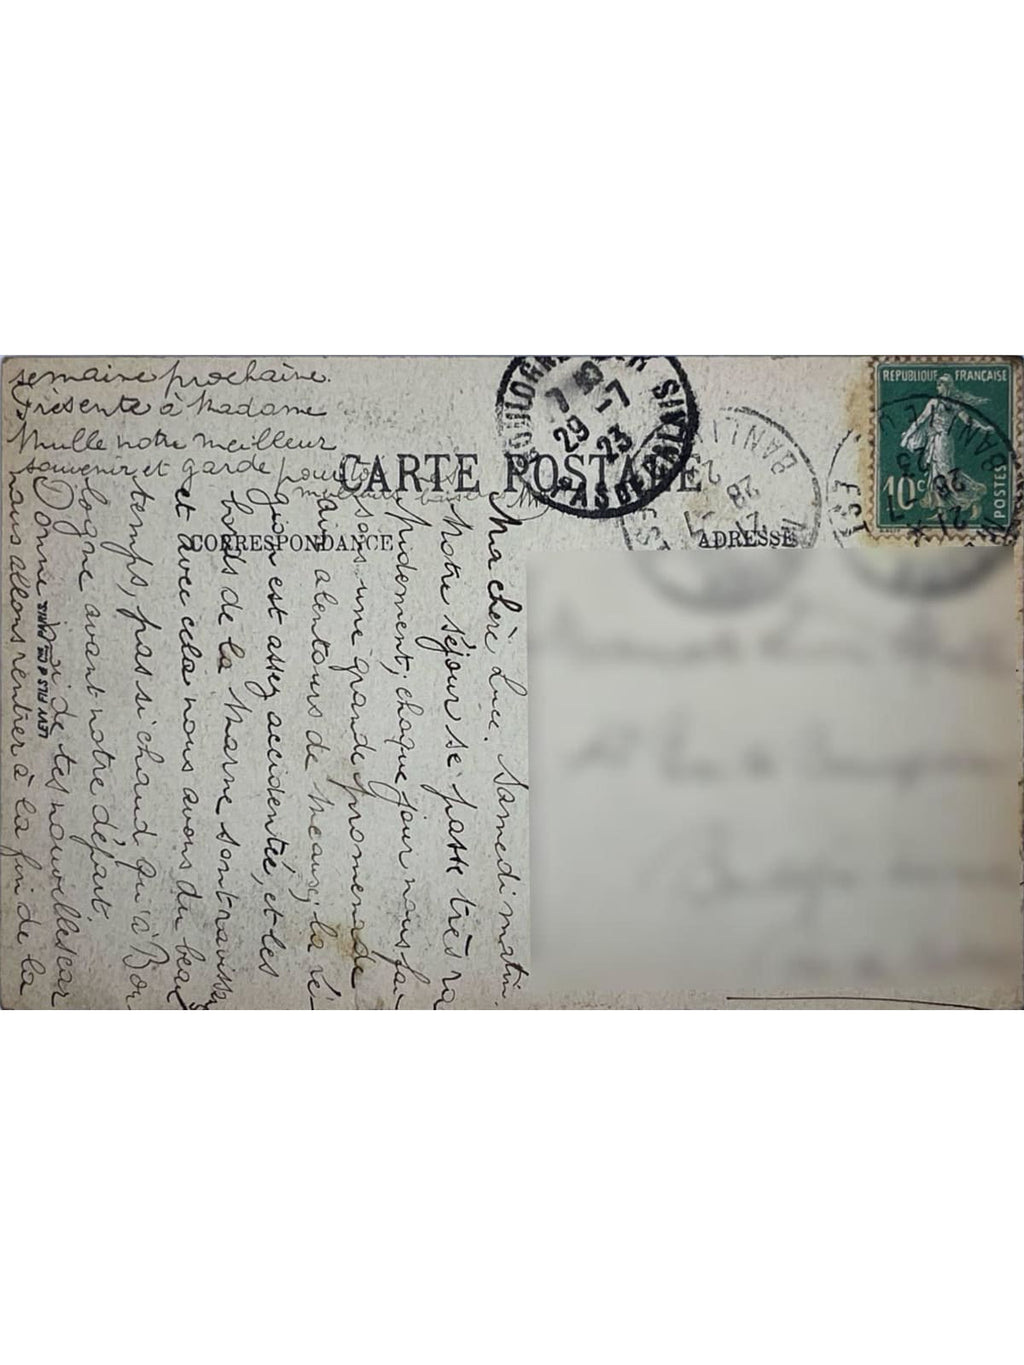 CARTE POSTALE
CORRESPONDANCE
ADRESSE
RÉPUBLIQUE FRANÇAISE
10c
POSTES
BOULOGNE SUR
7
29 -7
23
PAS DE CALAIS
BANLIEUE
21 28 7
23
EST
Ma chère Luce. Samedi matin.
Notre séjour se passe très ra
pidement, chaque jour nous fai
sons une grande promenade
aux alentours de Meaux, la ré
gion est assez accidentée, et les
bords de la Marne sont ravissants
et avec cela nous avons du beau
temps, pas si chaud qu'à Bou
logne avant notre départ.
Donne moi de tes nouvelles car
nous allons rentrer à la fin de la
semaine prochaine.
Présente à Madame
Mulle notre meilleur
souvenir et garde pour toi
LEVY FILS & Cie, PARIS